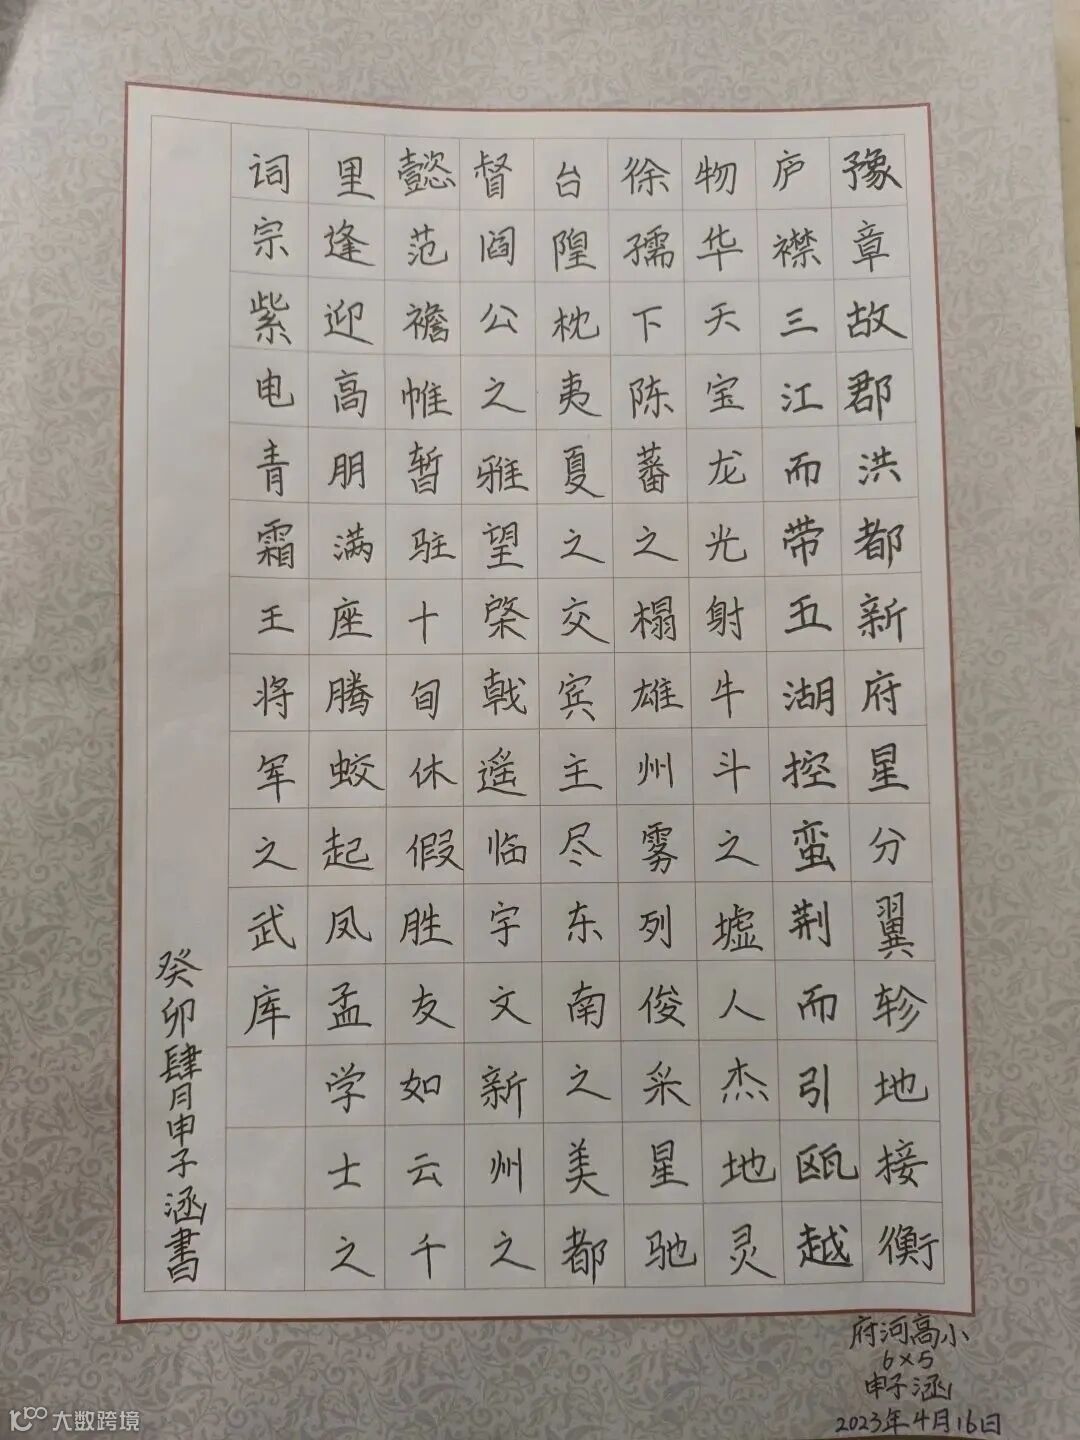 豫章故郡洪都新府星分翼轸地接衡
庐襟三江而带五湖控蛮荆而引瓯越
物华天宝龙光射牛斗之墟人杰地灵
徐孺下陈蕃之榻雄州雾列俊采星驰
台隍枕夷夏之交宾主尽东南之美都
督阎公之雅望棨戟遥临宇文新州之
懿范襜帷暂驻十旬休假胜友如云千
里逢迎高朋满座腾蛟起凤孟学士之
词宗紫电青霜王将军之武库
癸卯肆月申子涵書
府河高小
6×5
申子涵
2023年4月16日
大数跨境